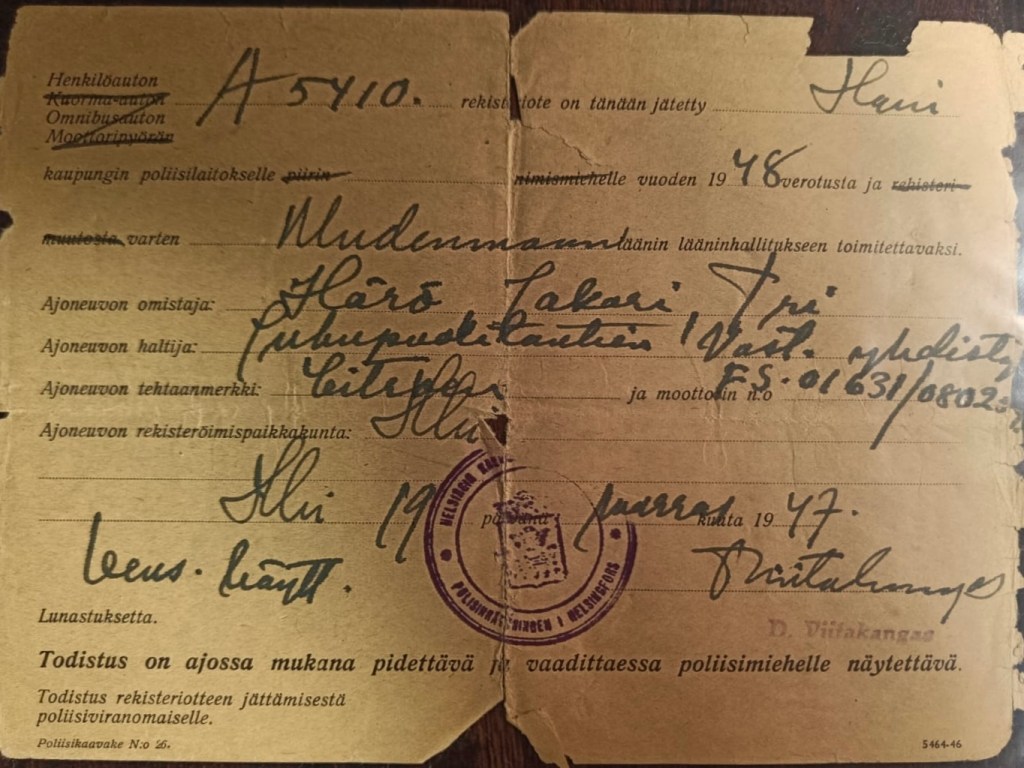 Henkilöauton
Kuorma-auton
Omnibusauton
Moottoripyörän
A 5410. rekisteriote on tänään jätetty
kaupungin poliisilaitokselle piirin nimismiehelle vuoden 1948 verotusta ja rekisteri-
muutosta varten Uudenmaan läänin lääninhallitukseen toimitettavaksi.
Ajoneuvon omistaja: Härö Sakari, Tri
Ajoneuvon haltija: Vast. yhdisty
Ajoneuvon tehtaanmerkki: Citroen ja moottorin n:o F.S. 01631/0802
Ajoneuvon rekisteröimispaikkakunta: Hki
Hki 19 päivänä marras kuuta 1947.
HELSINGIN
POLISINRÄTTNINGEN I HELSINGFORS
Lunastuksetta.
D. Viitakangas
Todistus on ajossa mukana pidettävä ja vaadittaessa poliisimiehelle näytettävä.
Todistus rekisteriotteen jättämisestä
poliisiviranomaiselle.
Poliisikaavake N:o 26.
5464-46